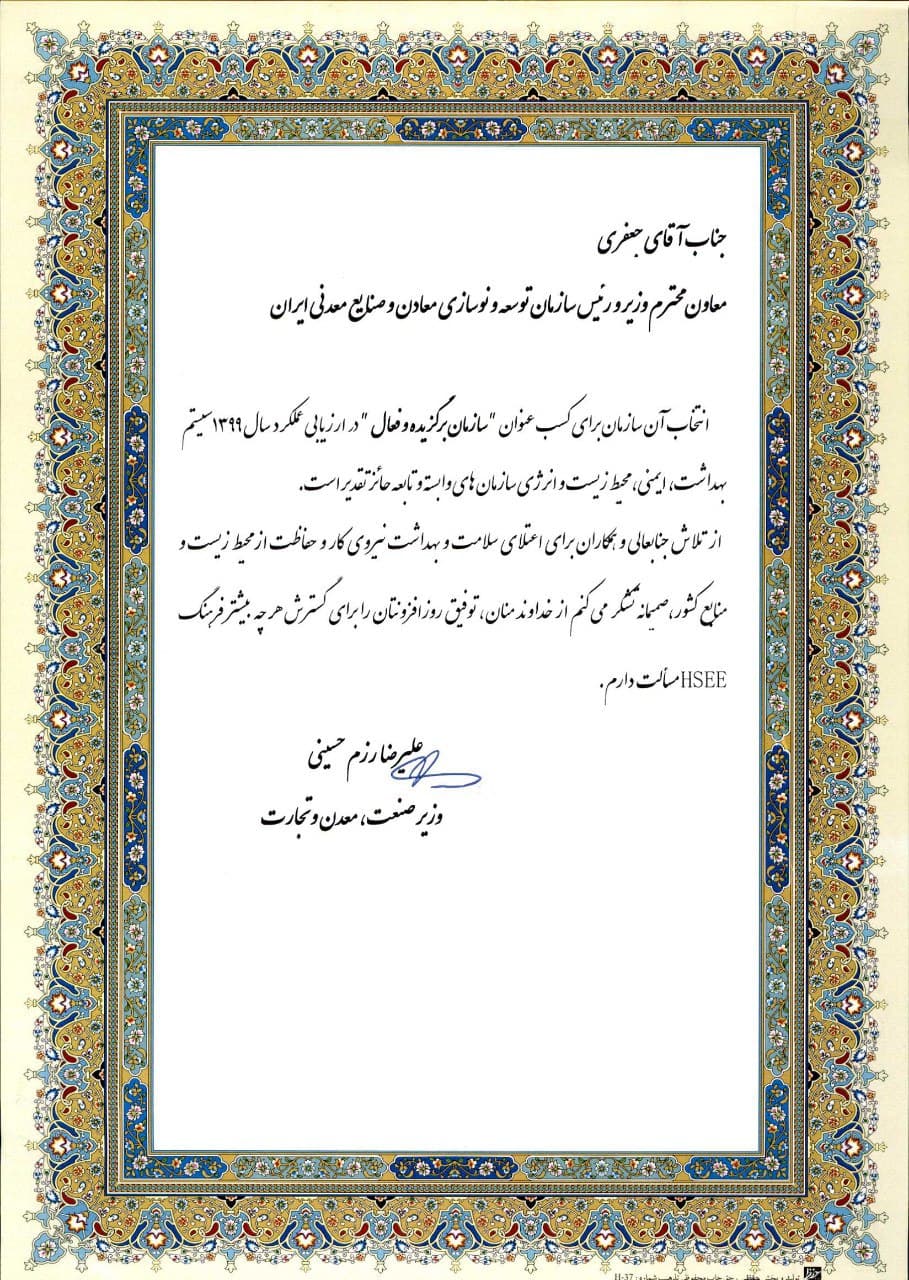 جناب آقای جعفری
معاون محترم وزیر و رئیس سازمان توسعه و نوسازی معادن و صنایع معدنی ایران
انتخاب آن سازمان برای کسب عنوان "سازمان برگزیده و فعال" در ارزیابی عملکرد سال ۱۳۹۹ سیستم
بهداشت، ایمنی، محیط زیست و انرژی سازمان های وابسته و تابعه حائز تقدیر است.
از تلاش جنابعالی و همکاران برای اعتلای سلامت و بهداشت نیروی کار و حفاظت از محیط زیست و
منابع کشور، صمیمانه تشکر می کنم از خداوند منان، توفیق روزافزونتان را برای گسترش هر چه بیشتر فرهنگ
HSEE مسألت دارم.
علیرضا رزم حسینی
وزیر صنعت، معدن و تجارت
تولید و پخش حفظی - حق چاپ محفوظ تذهیب شماره: H-37